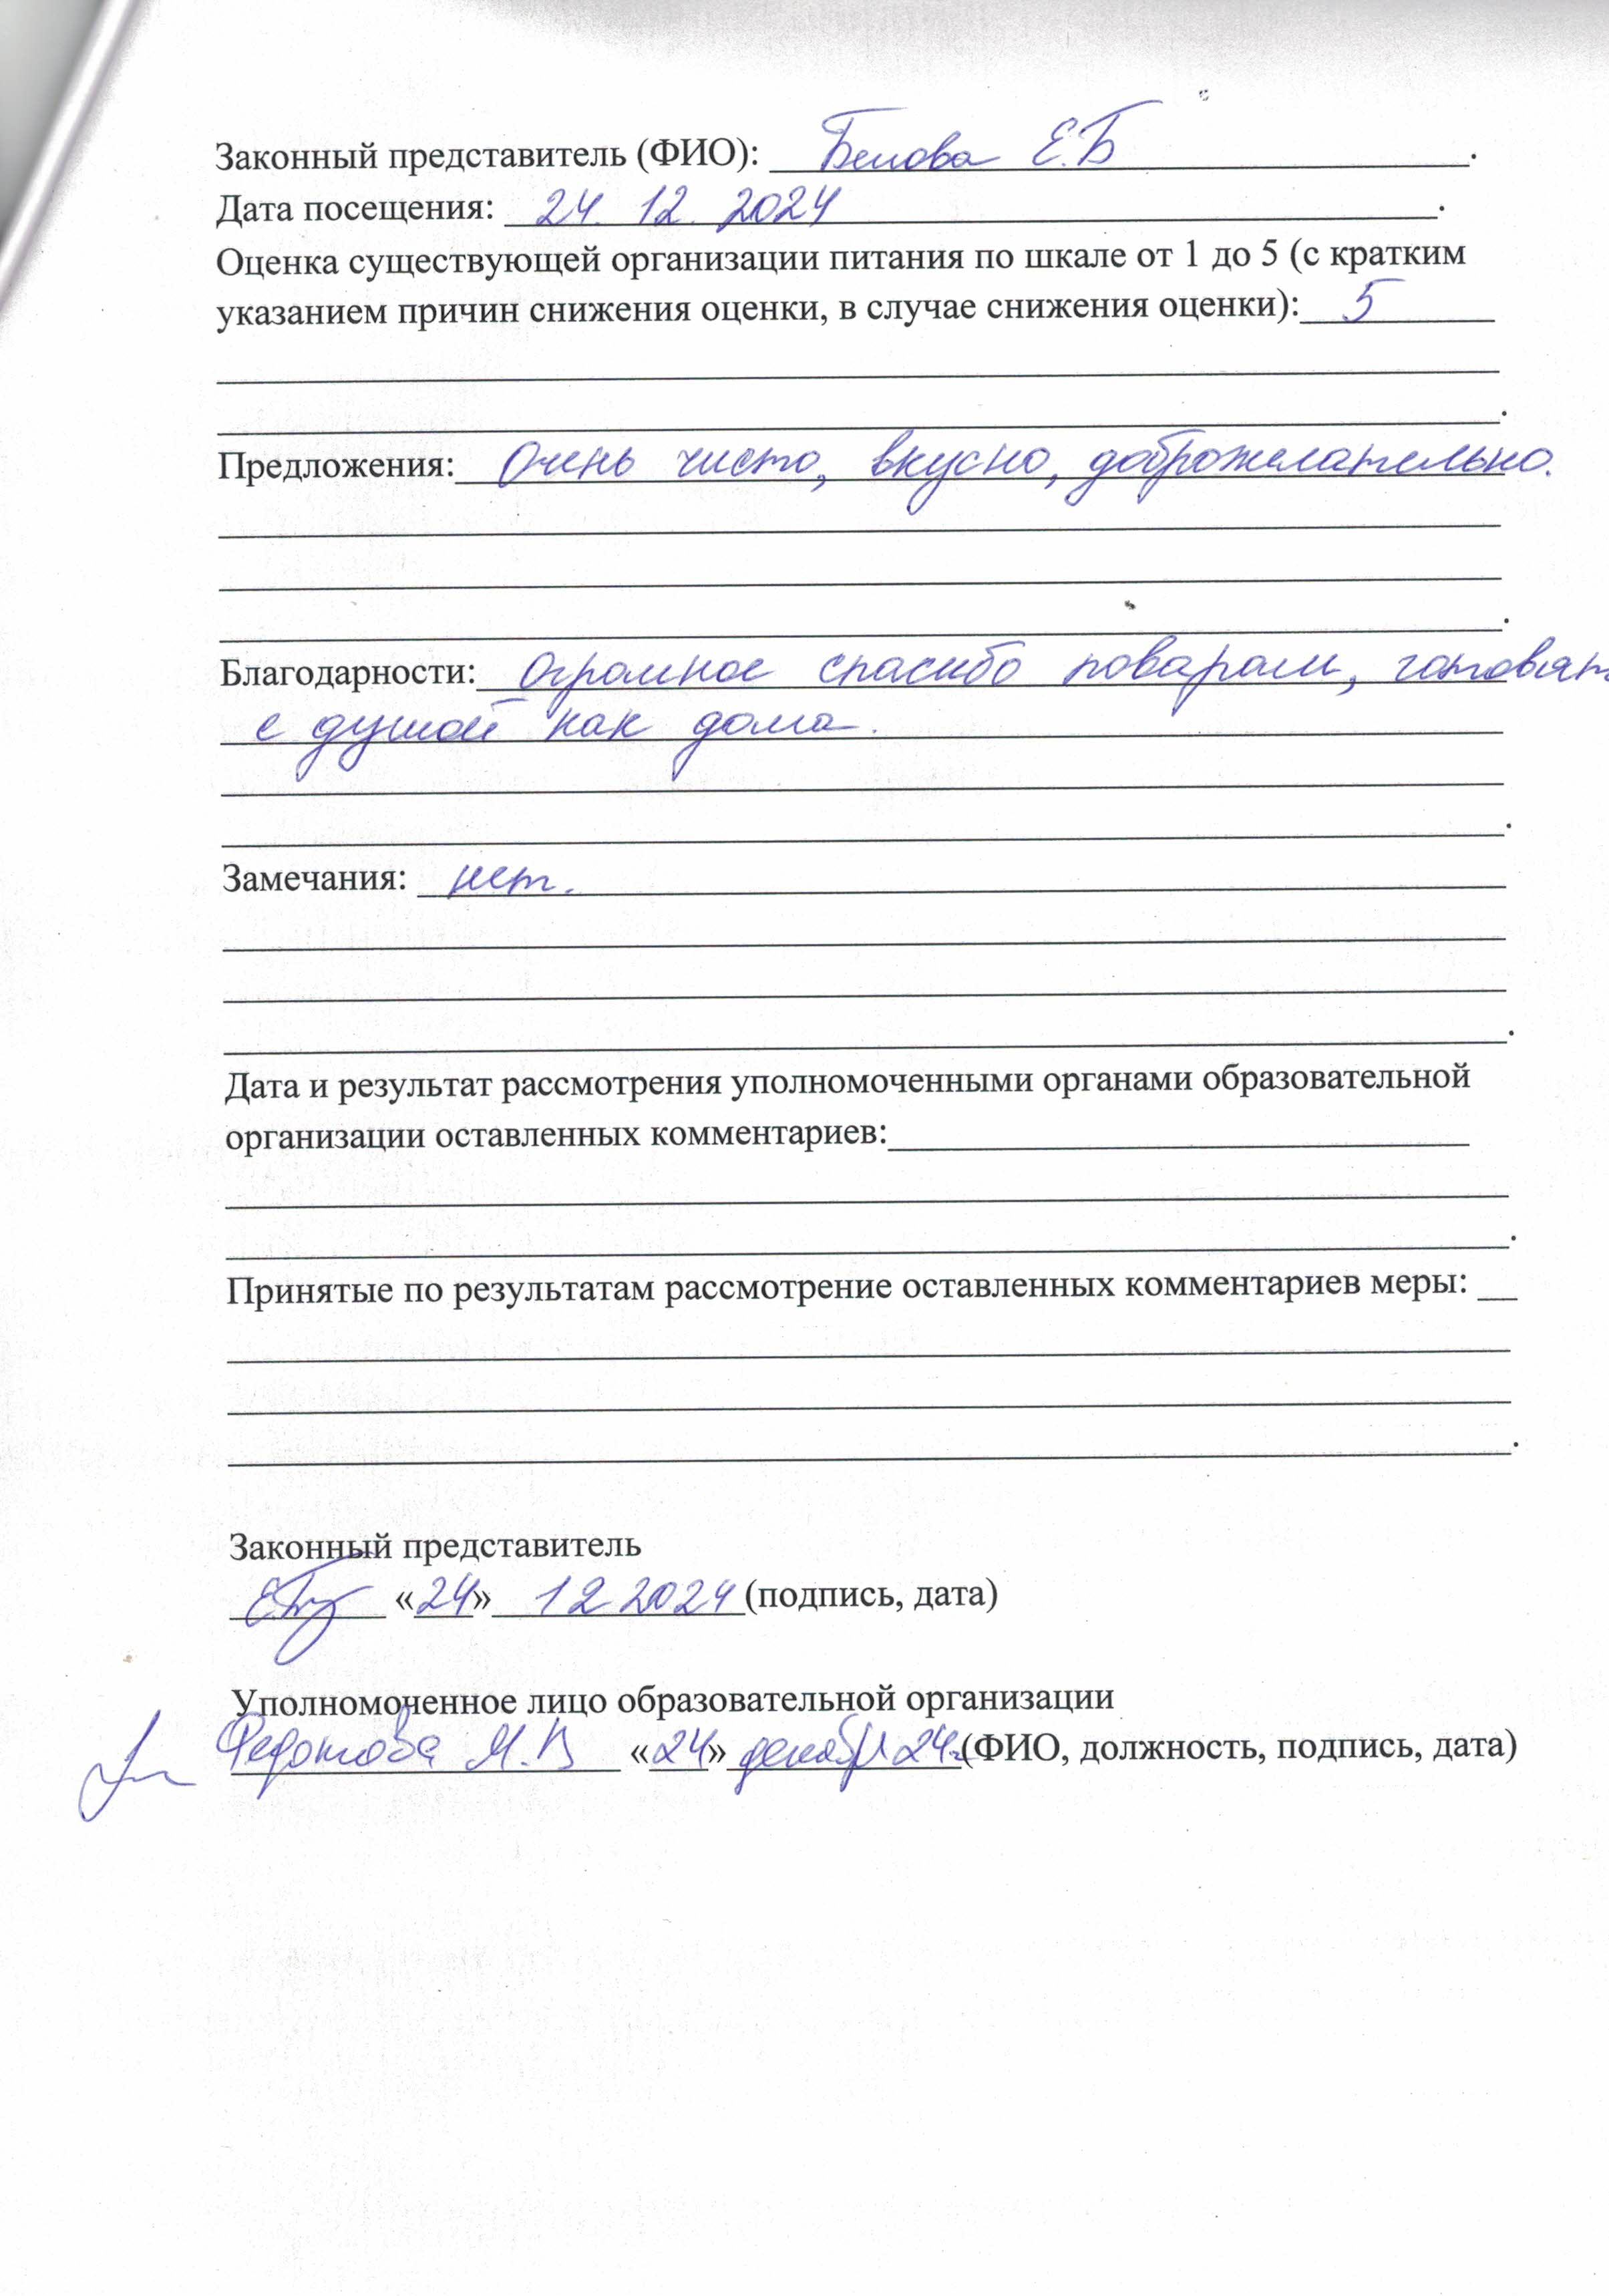 Законный представитель (ФИО): Белова Е.Б.
Дата посещения: 24. 12. 2024.
Оценка существующей организации питания по шкале от 1 до 5 (с кратким
указанием причин снижения оценки, в случае снижения оценки): 5
Предложения: Очень чисто, вкусно, доброжелательно.
Благодарности: Огромное спасибо поварам, готовят
с душой как дома.
Замечания: нет.
Дата и результат рассмотрения уполномоченными органами образовательной
организации оставленных комментариев:
Принятые по результатам рассмотрение оставленных комментариев меры:
Законный представитель
«24» 12 2024 (подпись, дата)
Уполномоченное лицо образовательной организации
Федотова М.В «24» декабрь 24г. (ФИО, должность, подпись, дата)